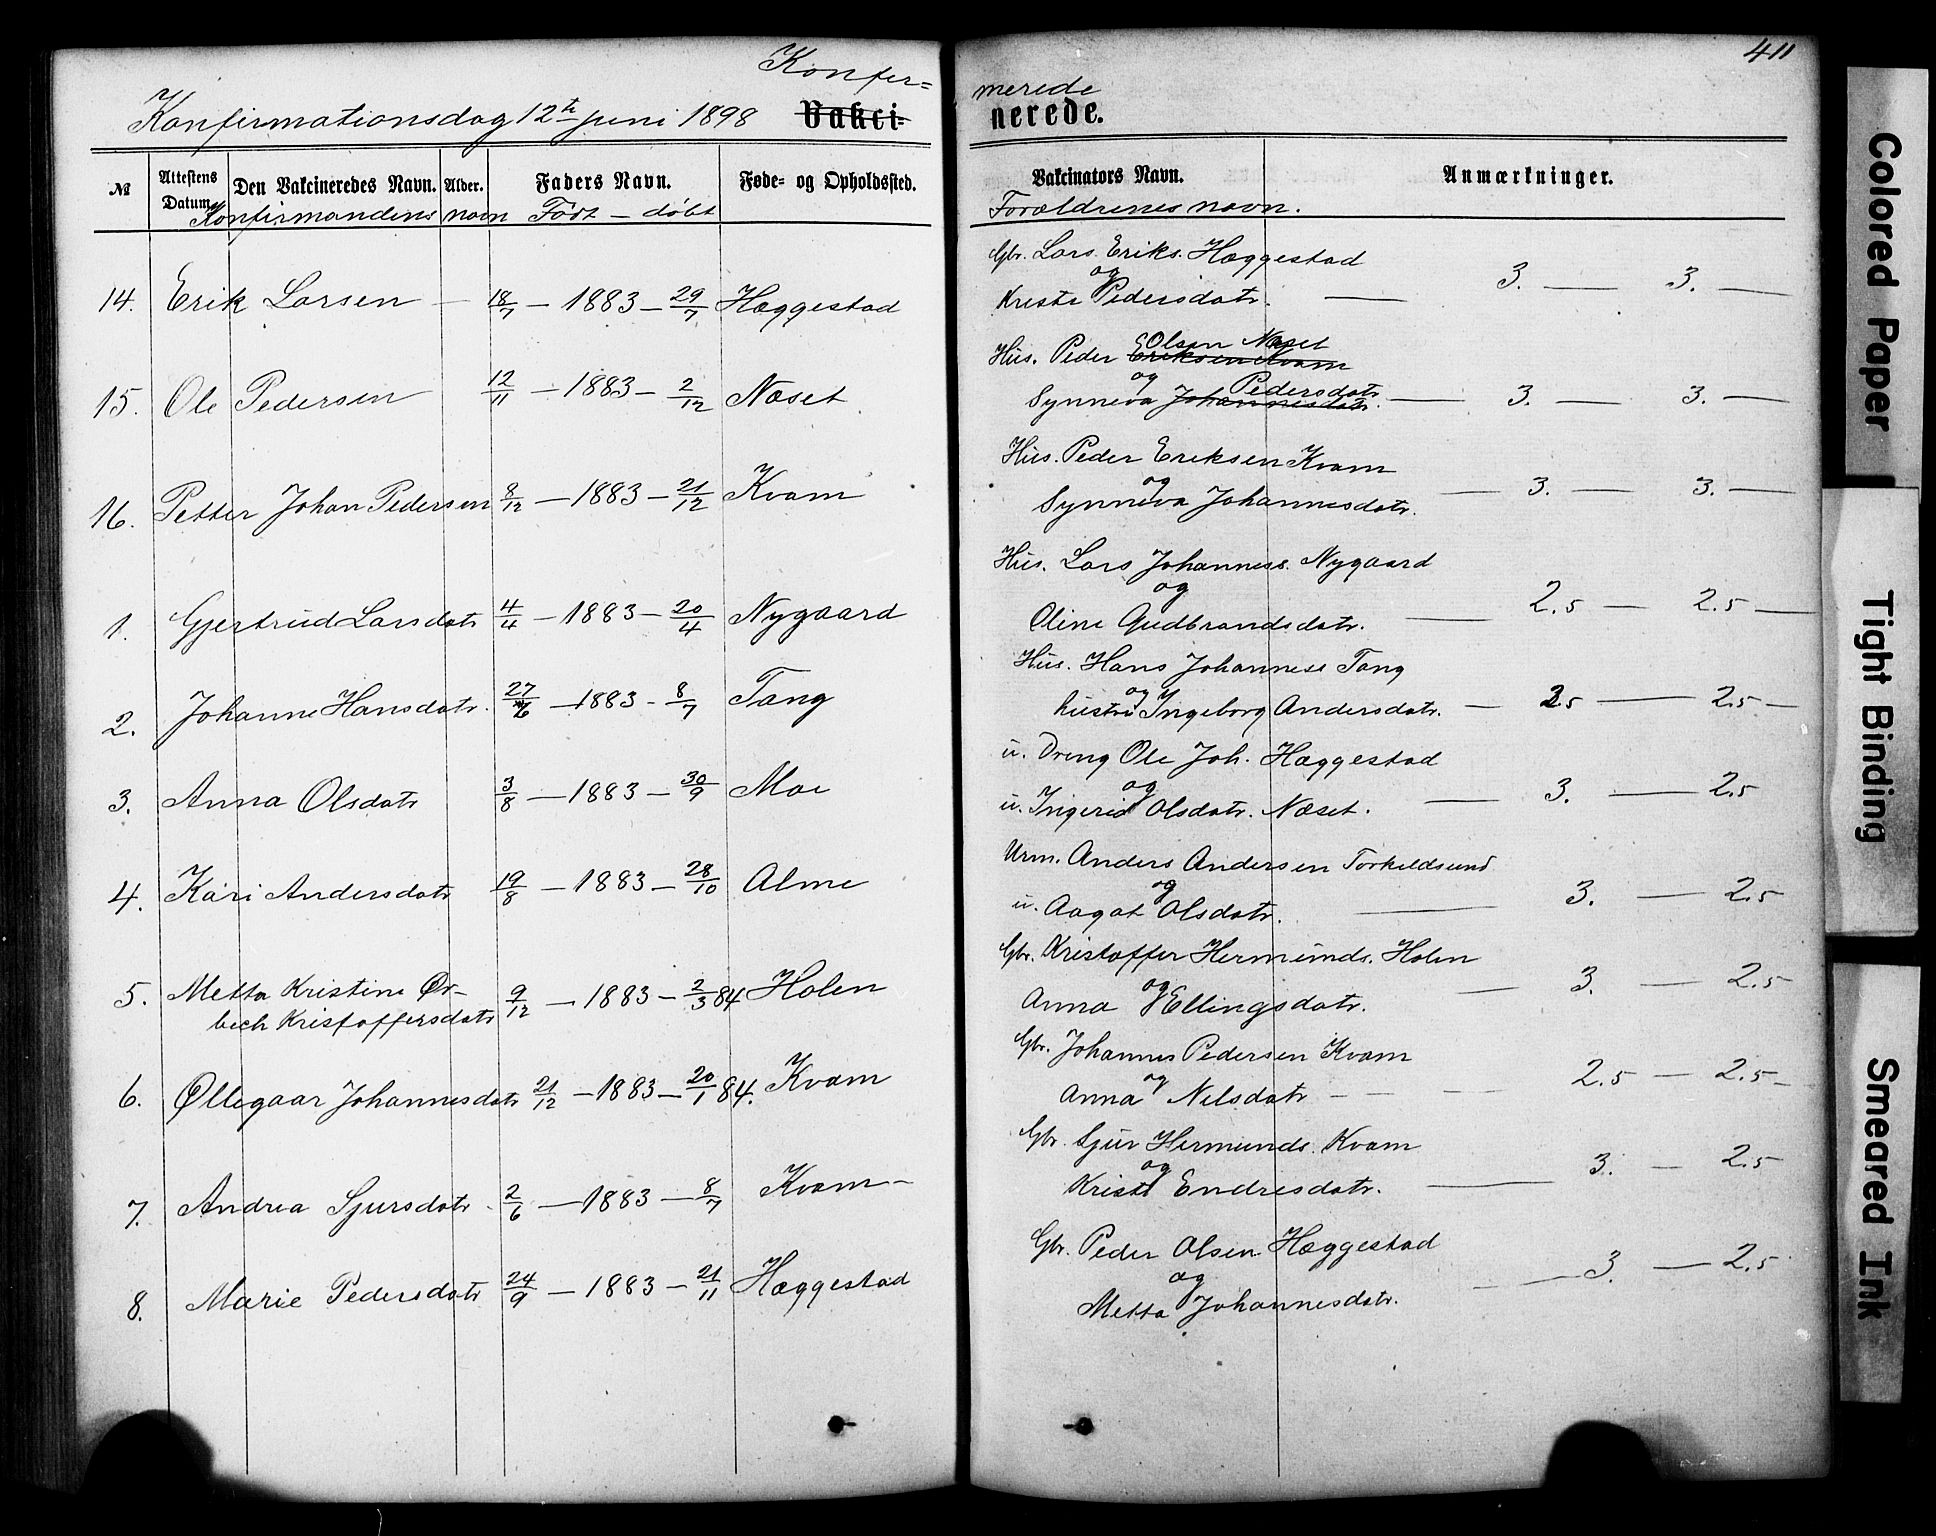 411
Konfer=
merede
Konfirmationsdag 12te juni 1898 Vakci=
nerede.
№ Attestens Datum. Den Vakcineredes Navn. Alder. Faders Navn. Føde- og Opholdssted. Vakcinators Navn. Anmærkninger.
Konfirmandens navn Født — døbt Forældrenes navn.
Gbr. Lars Eriks. Hæggestad
og
14. Erik Larsen — 18/7 — 1883 — 29/7 Hæggestad Kristi Pedersdatr. — 3. — 3. —
Olsen Næset
Hus. Peder Eriksen Kvam
og Pedersdatr
15. Ole Pedersen 12/11 — 1883 — 2/12 Næset Synneva Johannesdatr. — 3. — 3. —
Hus. Peder Eriksen Kvam
og
16. Petter Johan Pedersen 8/12 — 1883 — 21/12 Kvam Synneva Johannesdatr. — 3. — 3. —
Hus. Lars Johanness. Nygaard
og
1. Gjertrud Larsdatr 4/4 — 1883 — 20/4 Nygaard Oline Gudbrandsdatr. — 2.5 — 2.5 —
Hus. Hans Johanness Tang
og
2. Johanne Hansdatr. 27/6 — 1883 — 8/7 Tang hustru Ingeborg Andersdatr. — 2.5 — 2.5 —
u. Dreng Ole Joh. Hæggestad
og
3. Anna Olsdatr 3/8 — 1883 — 30/9 Moe u. Ingerid Olsdatr. Næset. — 3. — 2.5
Urm. Anders Andersen Torkildsund
og
4. Kari Andersdatr 19/8 — 1883 — 28/10 Alme u. Aagot Olsdatr. — 3. — 2.5
Gbr. Kristoffer Hermunds. Holen
og
5. Metta Kristine Ør-
bech Kristoffersdatr 9/12 — 1883 — 2/3 84 Holen Anna Ellingsdatr. — 3. — 2.5
Gbr. Johannes Pedersen Kvam
og
6. Øllegaar Johannesdatr 21/12 — 1883 — 20/1 84. Kvam Anna Nilsdatr — 2.5 — 2.5 —
Gbr. Sjur Hermunds. Kvam
og
7. Andrea Sjursdatr. 2/6 — 1883 — 8/7 Kvam — Kristi Endresdatr. — 3. — 2.5
Gbr. Peder Olsen Hæggestad
og
8. Marie Pedersdatr 24/9 — 1883 — 21/11 Hæggestad Metta Johannesdatr. — 3. — 2.5
Colored Paper
Tight Binding
Smeared Ink